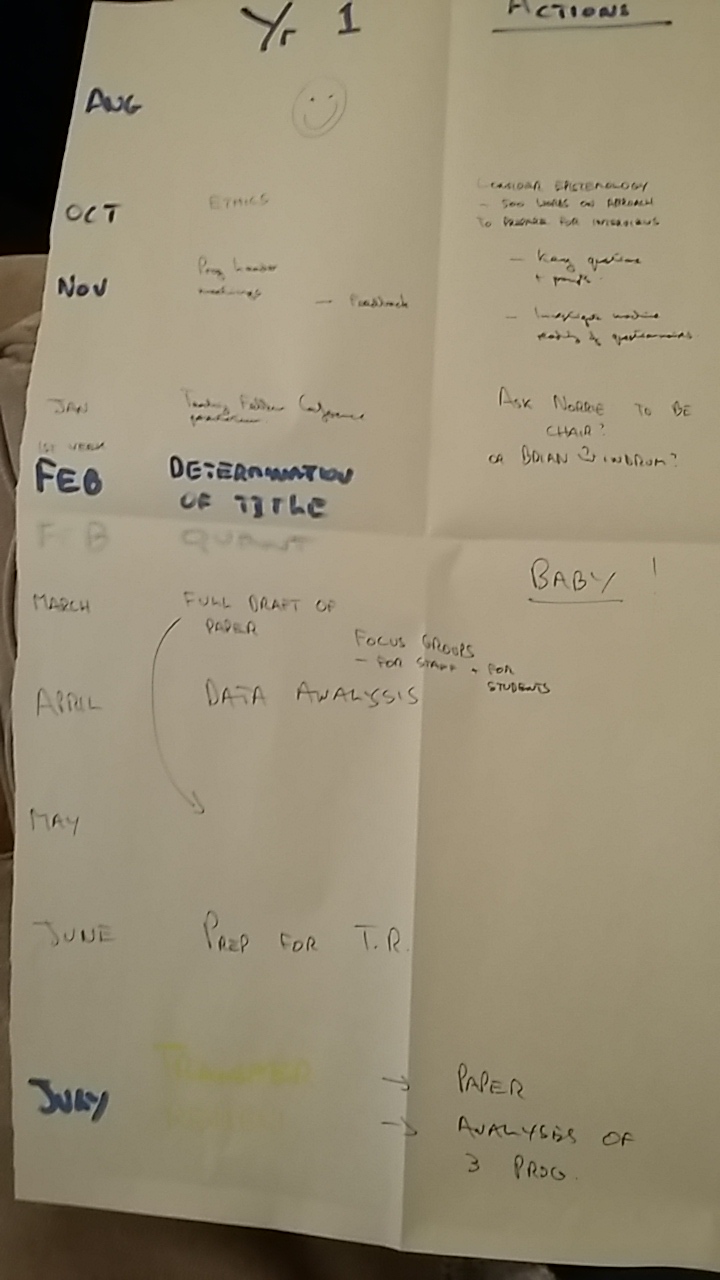 Yr 1
ACTIONS
AUG
OCT
ETHICS
CONSIDER EPISTEMOLOGY
- 500 WORDS ON APPROACH
TO PREPARE FOR INTERVIEWS
NOV
Prog leader
meetings
- Feedback
- Key questions
+ 
- Investigate machine
reading of questionnaires
JAN
Conference
ASK NORRIE TO BE
CHAIR?
OR BRIAN ?
1ST WEEK
FEB
DETERMINATION
OF TITLE
FEB
QUANT
BABY!
MARCH
FULL DRAFT OF
PAPER
FOCUS GROUPS
- FOR STAFF + FOR
STUDENTS
APRIL
DATA ANALYSIS
MAY
JUNE
PREP FOR T.R.
JULY
TRANSFER
REVIEW
→ PAPER
→ ANALYSES OF
3 PROG.